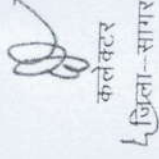 कलेक्टर
जिला--सागर